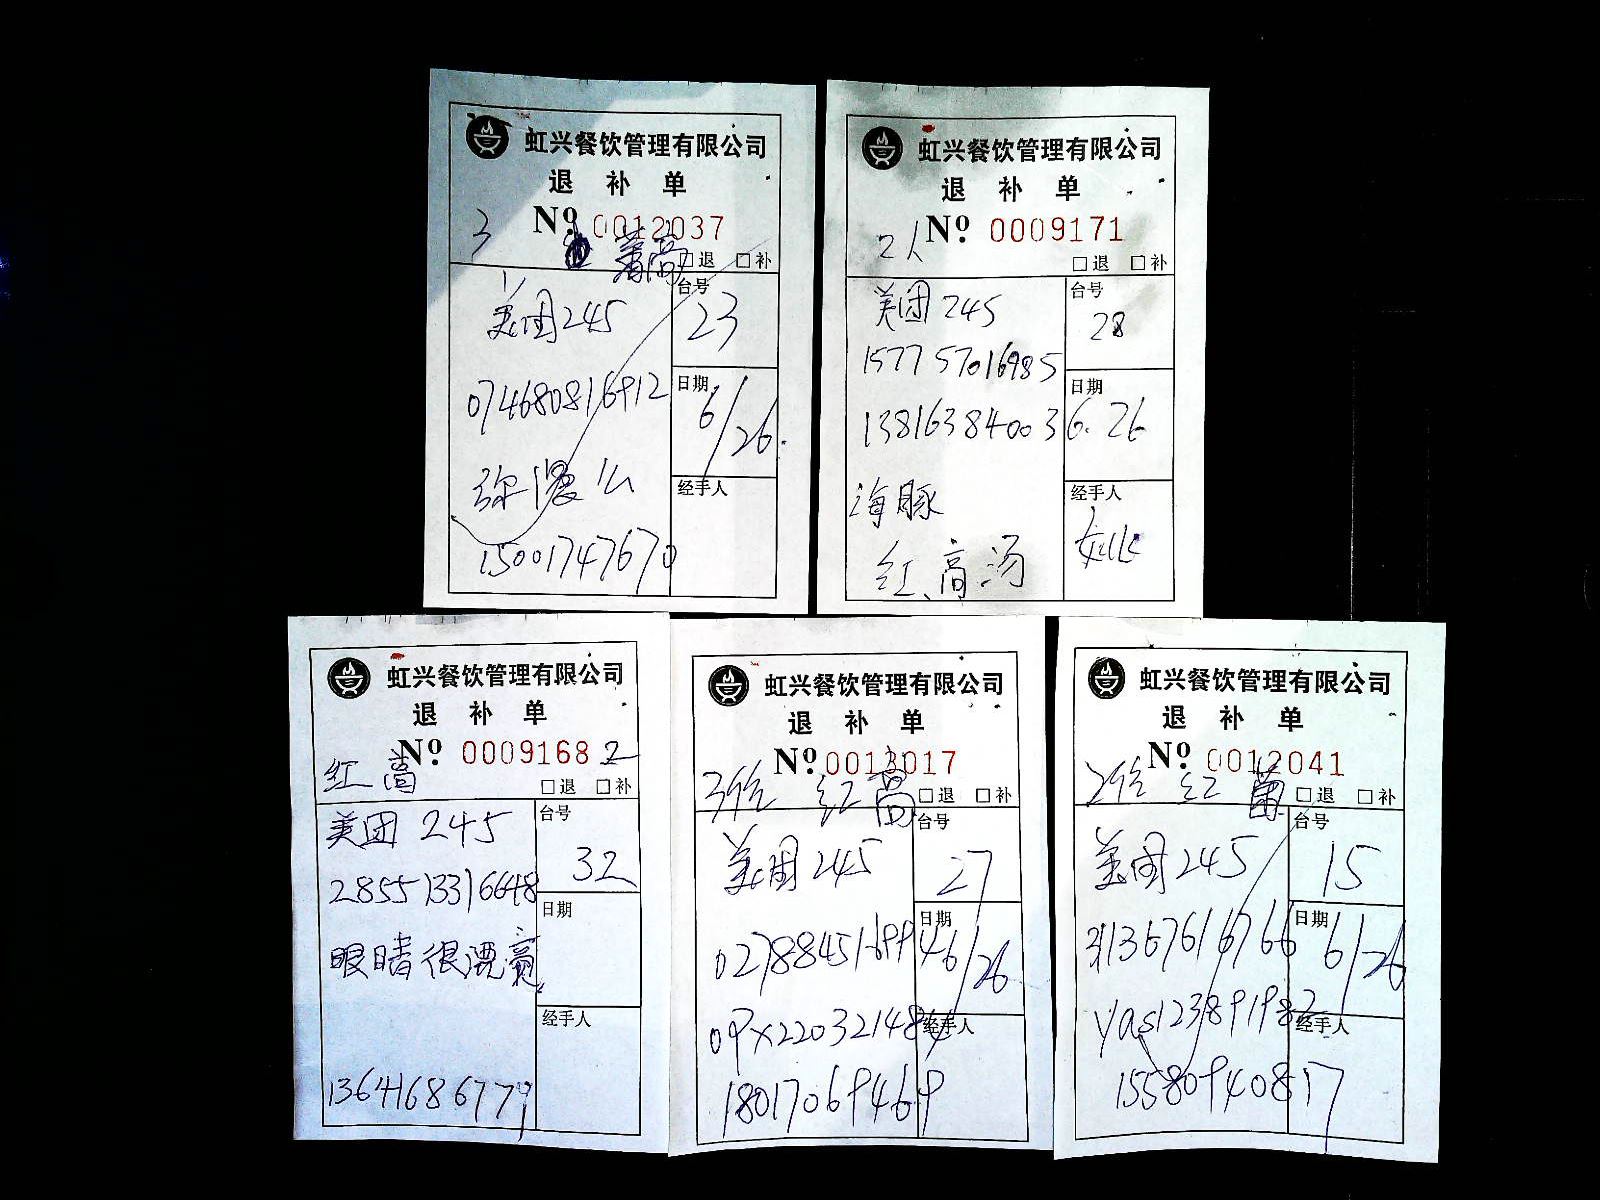 虹兴餐饮管理有限公司
退 补 单
3 Nº 0012037
□退 □补
美团245
台号
23
074680816912
日期
6/26
经手人
15001747670
虹兴餐饮管理有限公司
退 补 单
2人 Nº 0009171
□退 □补
美团 245
台号
28
157757016985
日期
13816384003
6.26
海豚
经手人
红、高汤
虹兴餐饮管理有限公司
退 补 单
Nº 0009168 2
红 高 □退 □补
美团 245
台号
32
285513316648
日期
眼睛很漂亮
经手人
13641686779
虹兴餐饮管理有限公司
退 补 单
Nº 0013017
3位 红高 □退 □补
美团245
台号
27
027884516994
日期
6/26
经手人
18017069469
虹兴餐饮管理有限公司
退 补 单
Nº 0012041
2位 红 □退 □补
美团245
台号
15
日期
6/26
yas123891982
经手人
15580940817